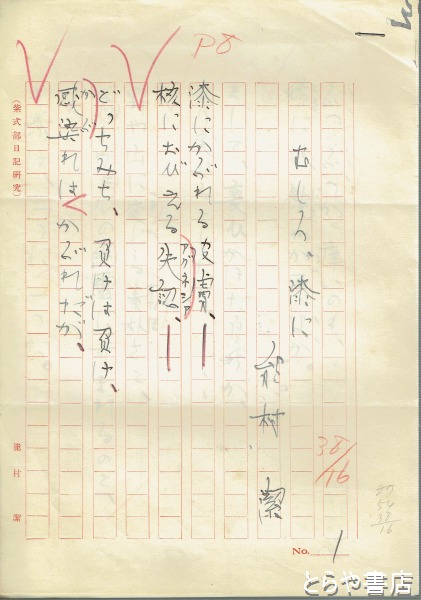 P8
むしろ、漆に
能村 潔
漆にかぶれる皮膚、
核におびえる失認、
アグネシア
どっちみち、負けは負け、
感染れば かぶれたが、
かぶ
38/16
(紫式部日記研究)
能村 潔
No. 1
とらや書店